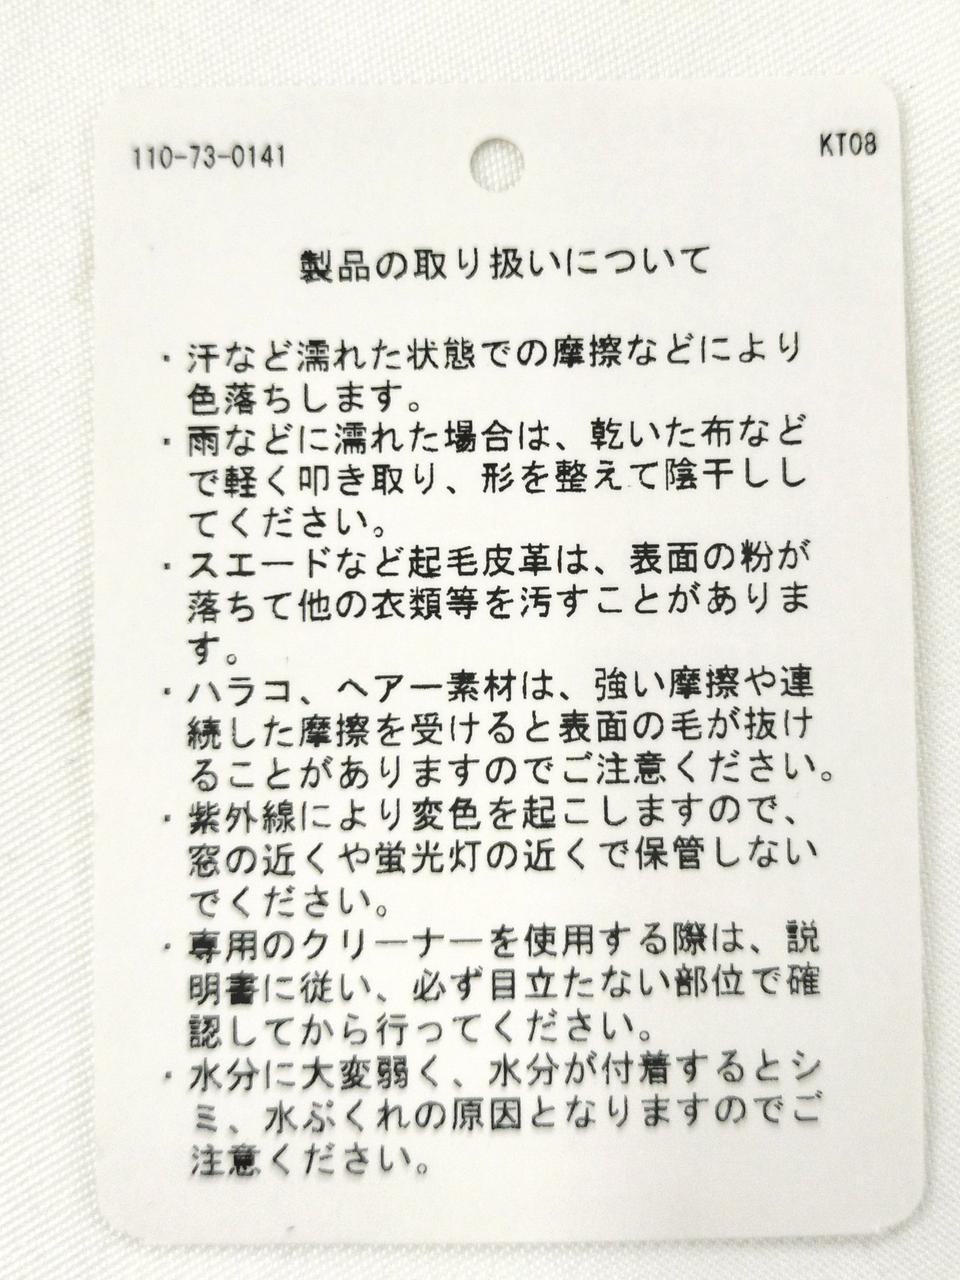 110-73-0141
KT08
製品の取り扱いについて
・汗など濡れた状態での摩擦などにより
色落ちします。
・雨などに濡れた場合は、乾いた布など
で軽く叩き取り、形を整えて陰干しし
てください。
・スエードなど起毛皮革は、表面の粉が
落ちて他の衣類等を汚すことがありま
す。
・ハラコ、ヘアー素材は、強い摩擦や連
続した摩擦を受けると表面の毛が抜け
ることがありますのでご注意ください。
・紫外線により変色を起こしますので、
窓の近くや蛍光灯の近くで保管しない
でください。
・専用のクリーナーを使用する際は、説
明書に従い、必ず目立たない部位で確
認してから行ってください。
・水分に大変弱く、水分が付着するとシ
ミ、水ぶくれの原因となりますのでご
注意ください。